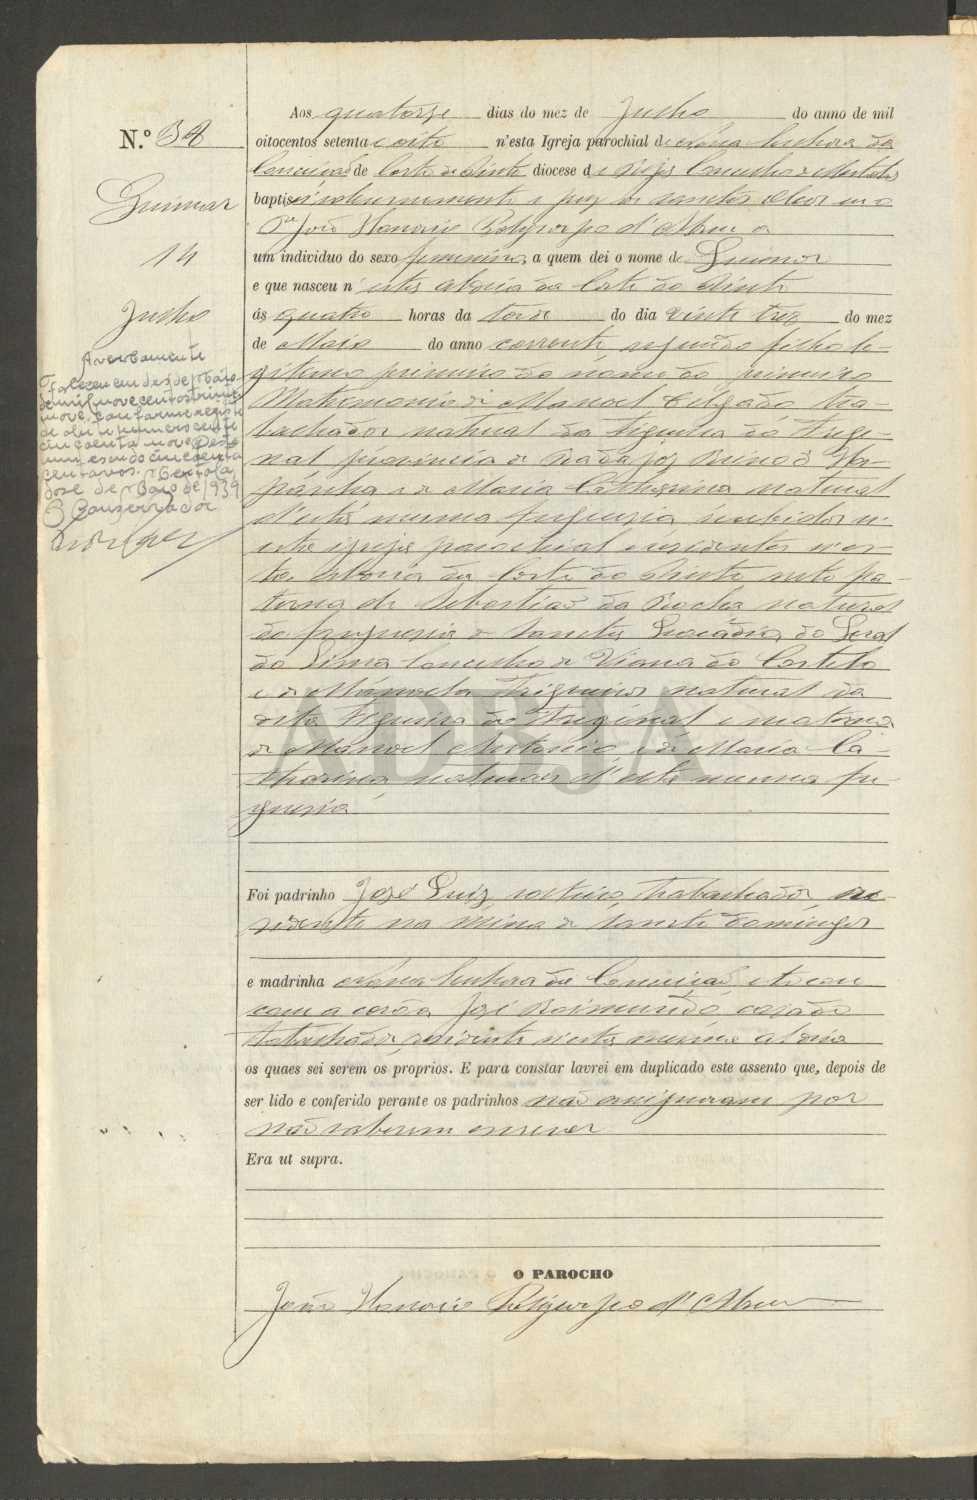 N.º 38
Guimar
14
Junho
Averbamento
Faleceu em dez de Maio
de mil novecentos trinta e
nove, conforme registo
de obito numero cento
cincoenta nove. Dese
um escudo cincoenta
centavos. Mertola,
doze de Maio de 1939
O Conservador
Aos quatorze dias do mez de Junho do anno de mil
oitocentos setenta e oito n'esta Igreja parochial de Nóssa Senhora da
Conceição de Corte do Pinto diocese de Beja Concelho de Mertola
baptisei solemnemente e puz os santos oleos eu o
P.e João Honorio Polycarpo d'Abreu a
um individuo do sexo femenino, a quem dei o nome de Guiomar
e que nasceu n'esta aldeia da Corte do Pinto
ás quatro horas da tarde do dia vinte trez do mez
de Maio do anno corrente, segundo filho le-
gitimo primeiro do nome do primeiro
Matrimonio de Manoel Delgado tra-
balhador natural da Figueira do Fregi-
nal provincia de Badajoz Reino d'Hes-
pánha e de Maria Catherina natural
d'esta mesma freguezia recebidos n'
esta igreja parochial e residentes n'es-
ta aldeia da Corte do Pinto, neto pa-
terno de Sebastião da Rocha natural
da freguezia de Santa Leocádia do Geraz
do Lima Concelho de Viana do Castelo
e de Manoela Trigueiros natural da
dita Figueira do Freginal e materno
de Manoel Antonio, e de Maria Ca-
tharina, naturaes d'esta mesma fre-
guezia
Foi padrinho José Luiz, solteiro, trabalhador, re-
sidente na Mina de Sancto Domingos
e madrinha Nóssa Senhora da Conceição, e tocou
com a corôa José Raimundo, casado
trabalhador, residente n'esta mesma aldeia
os quaes sei serem os proprios. E para constar lavrei em duplicado este assento que, depois de
ser lido e conferido perante os padrinhos não assignaram por
não saberem escrever
Era ut supra.
O PAROCHO
João Honorio Polycarpo d'Abreu
ADBJA